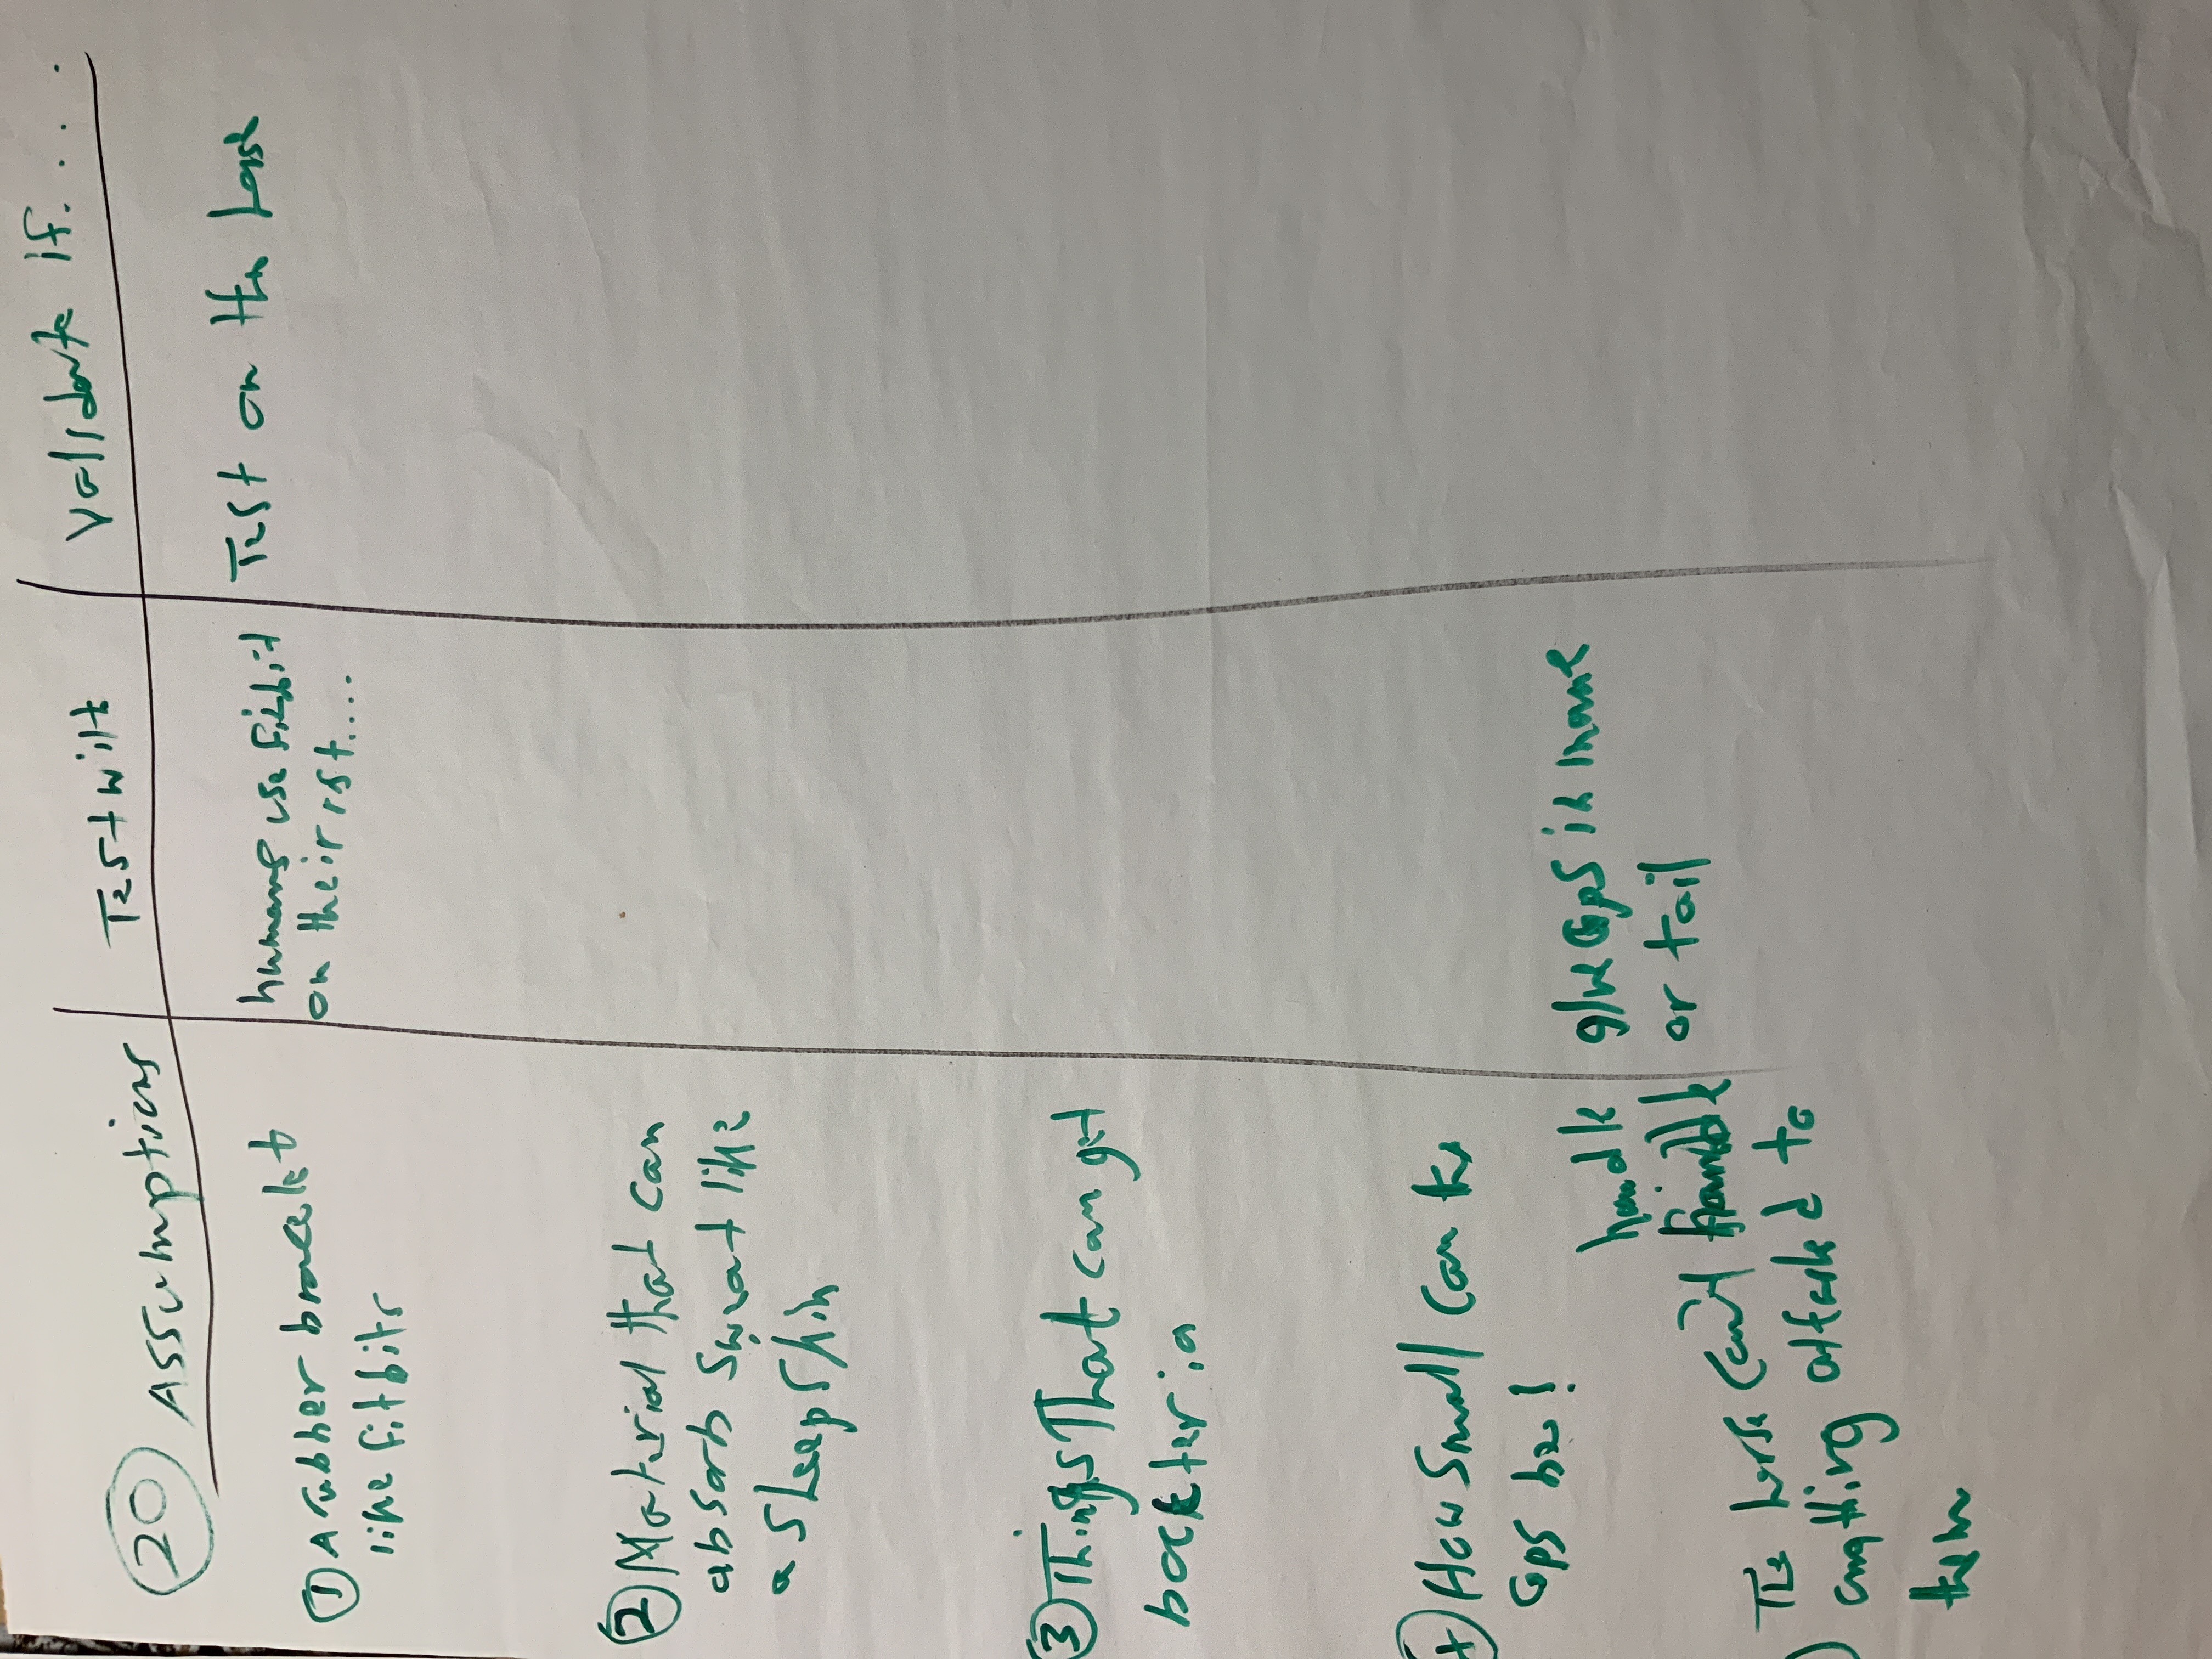 20 Assumptions
Test wilt
Validate If.....
1 A rubber bracelet
like fitbits
humans use fitbit
on their rst....
Test on the hose
2 Material that can
absorb sweat like
a sleep skin
3 Things That can get
backteria
How small can the
Gps be!
handle
The horse can't
anything attached to
them
glue Gps in mane
or tail